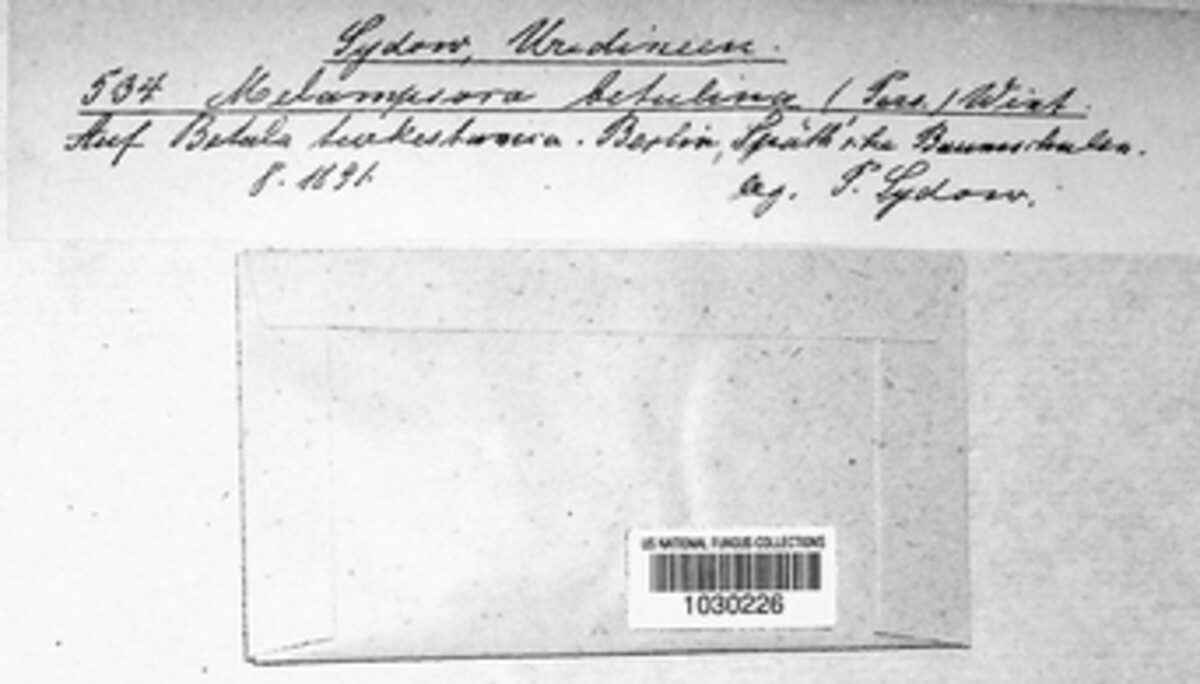 Sydow, Uredineen.
534 Melampsora betulina (Pers.) Wint.
Auf Betula turkestanica. Berlin, Späth'sche Baumschulen.
8. 1891. leg. P. Sydow.
US NATIONAL FUNGUS COLLECTIONS
1030226